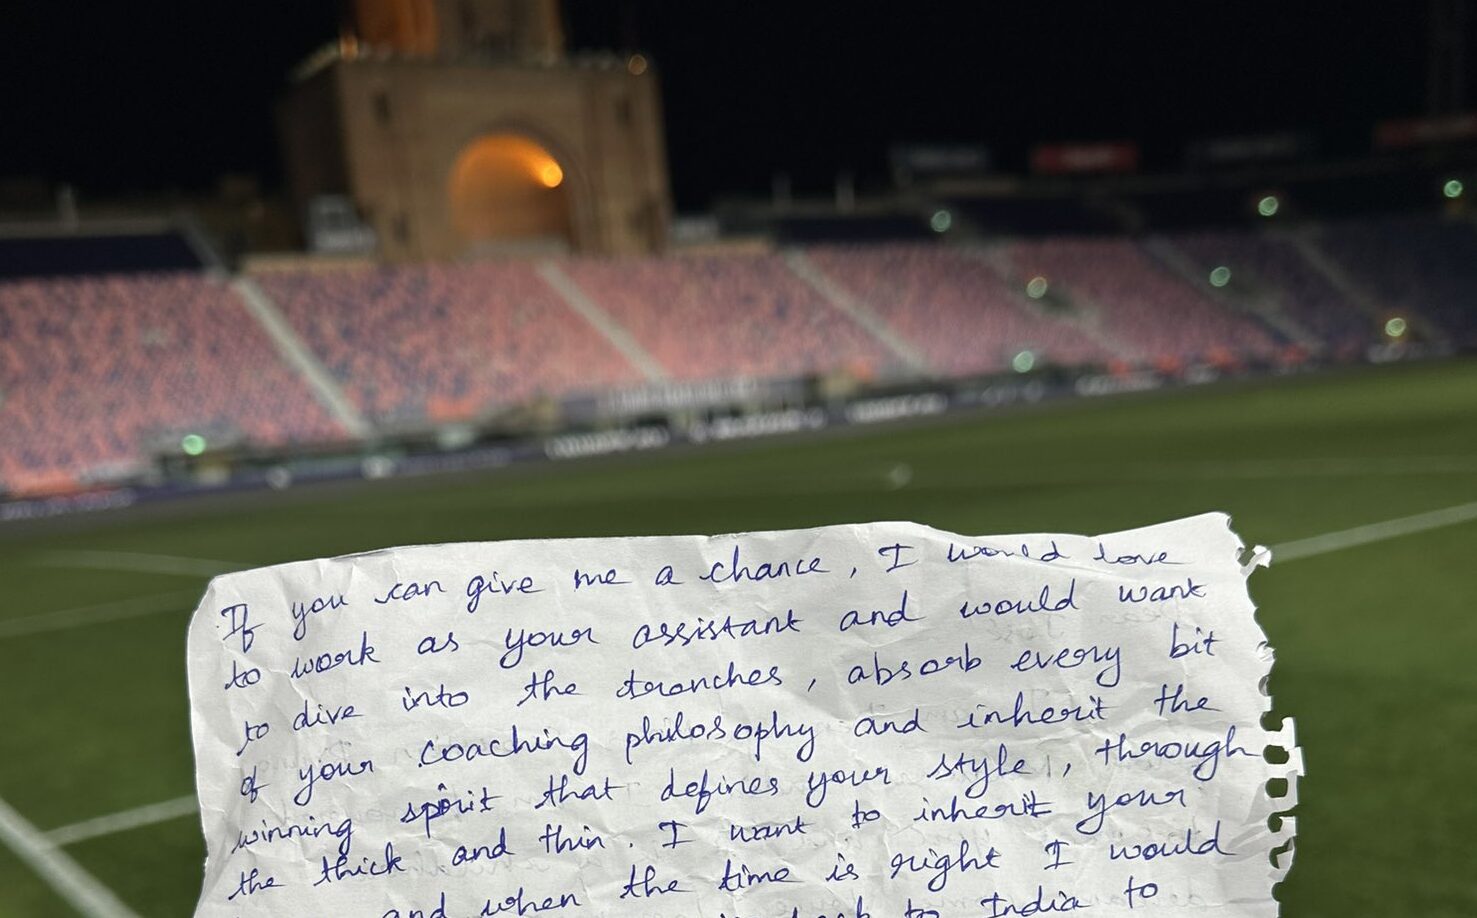 If you can give me a chance, I would love
to work as your assistant and would want
to dive into the trenches, absorb every bit
of your coaching philosophy and inherit the
winning spirit that defines your style, through
the thick and thin. I want to inherit your
and when the time is right I would
back to India to